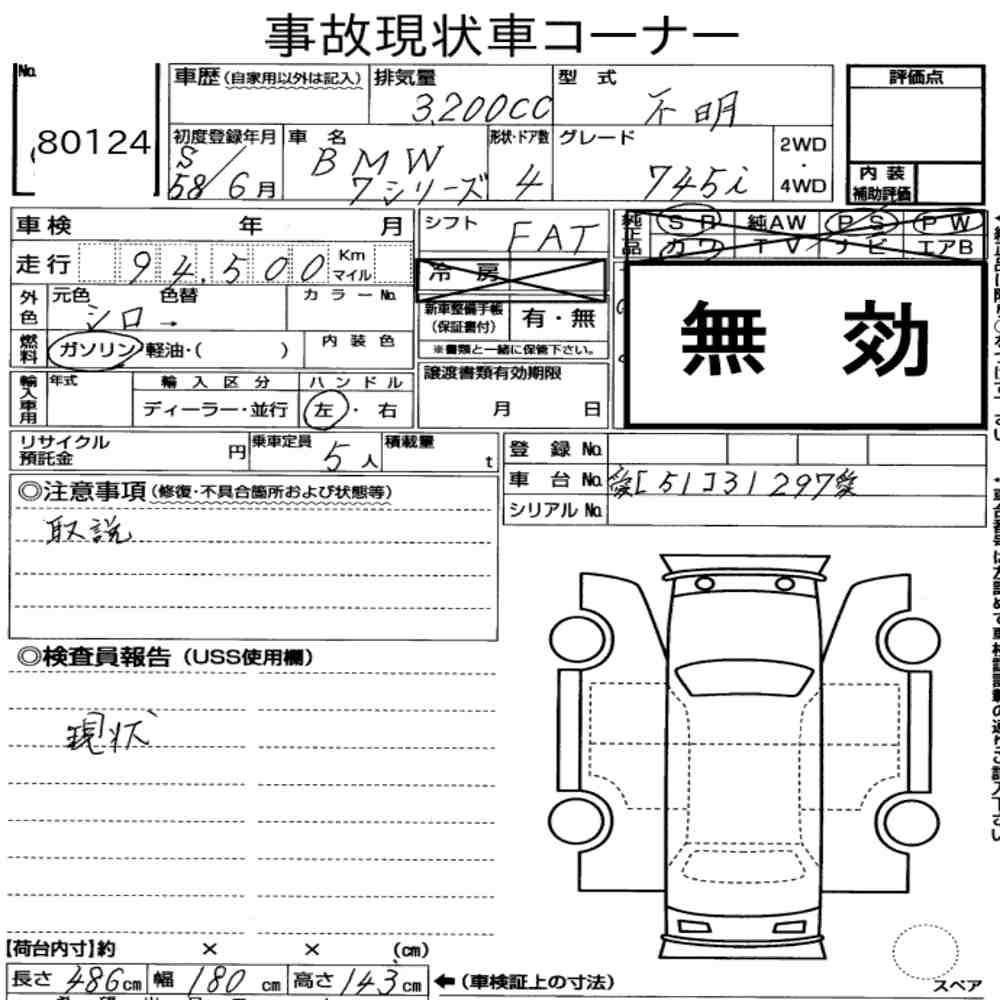 事故現状車コーナー
No. 80124
車歴(自家用以外は記入) 排気量 3,200CC 型式 不明 評価点
初度登録年月 S58/6月 車名 BMW 7シリーズ 形状・ドア数 4 グレード 745i 2WD・4WD
内装補助評価
車検 年 月 シフト FAT 純正品 SR 純AW PS PW
カワ TV ナビ エアB
走行 94,500 Km マイル 冷房
外色 元色 シロ→ 色替 カラーNo. 新車整備手帳(保証書付) 有・無
※書類と一緒に保管下さい。
無効
燃料 ガソリン/軽油・( ) 内装色
輸入車用 年式 輸入区分 ディーラー・並行 ハンドル 左・右 譲渡書類有効期限 月 日
リサイクル預託金 円 乗車定員 5人 積載量 t 登録No.
車台No. [51]31297
シリアルNo.
◎注意事項(修復・不具合箇所および状態等)
取説
◎検査員報告(USS使用欄)
現状
【荷台内寸】約 × × (cm)
長さ 486cm 幅 180cm 高さ 143cm ←(車検証上の寸法)
スペア